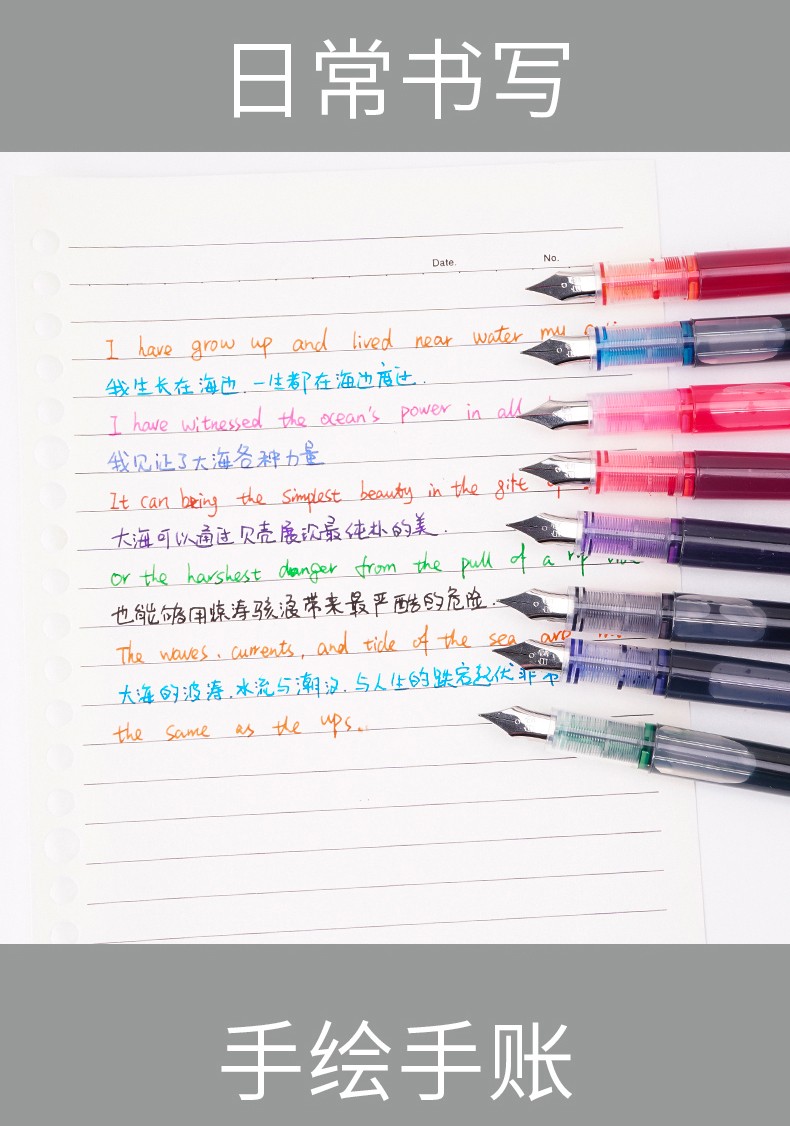 日常书写
Date. No.
I have grow up and lived near water my
我生长在海边.一生都在海边度过.
I have witnessed the ocean's power in all
我见证了大海各种力量
It can being the simplest beauty in the gift
大海可以通过贝壳展示最纯朴的美.
or the harshest danger from the pull of a rip
也能够用惊涛骇浪带来最严酷的危险.
The waves. currents, and tide of the sea are
大海的波涛.水流与潮汐.与人生的跌宕起伏非
the same as the ups.
手绘手账